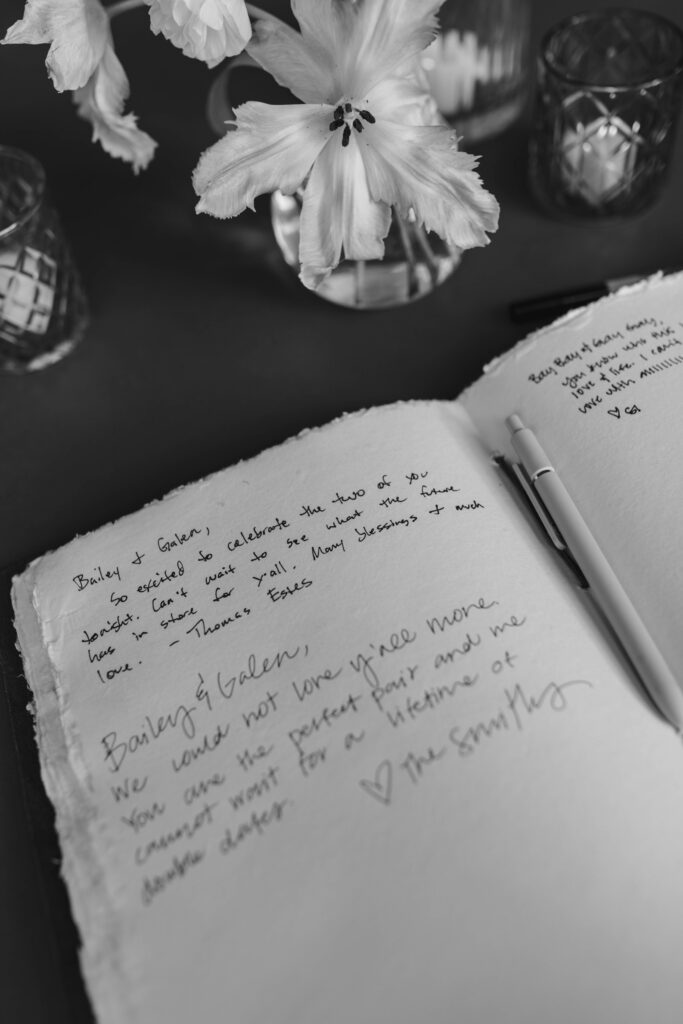 Bailey + Galen,
So excited to celebrate the two of you
tonight. Can't wait to see what the future
has in store for y'all. Many blessings + much
love. - Thomas Estes
Bailey & Galen,
We could not love y'all more.
You are the perfect pair and me
cannot wait for a lifetime of
double dates. ♡ The Smithys
Bay Bay & Galey Galey,
you know who this
love & life. I can't
love with
♡